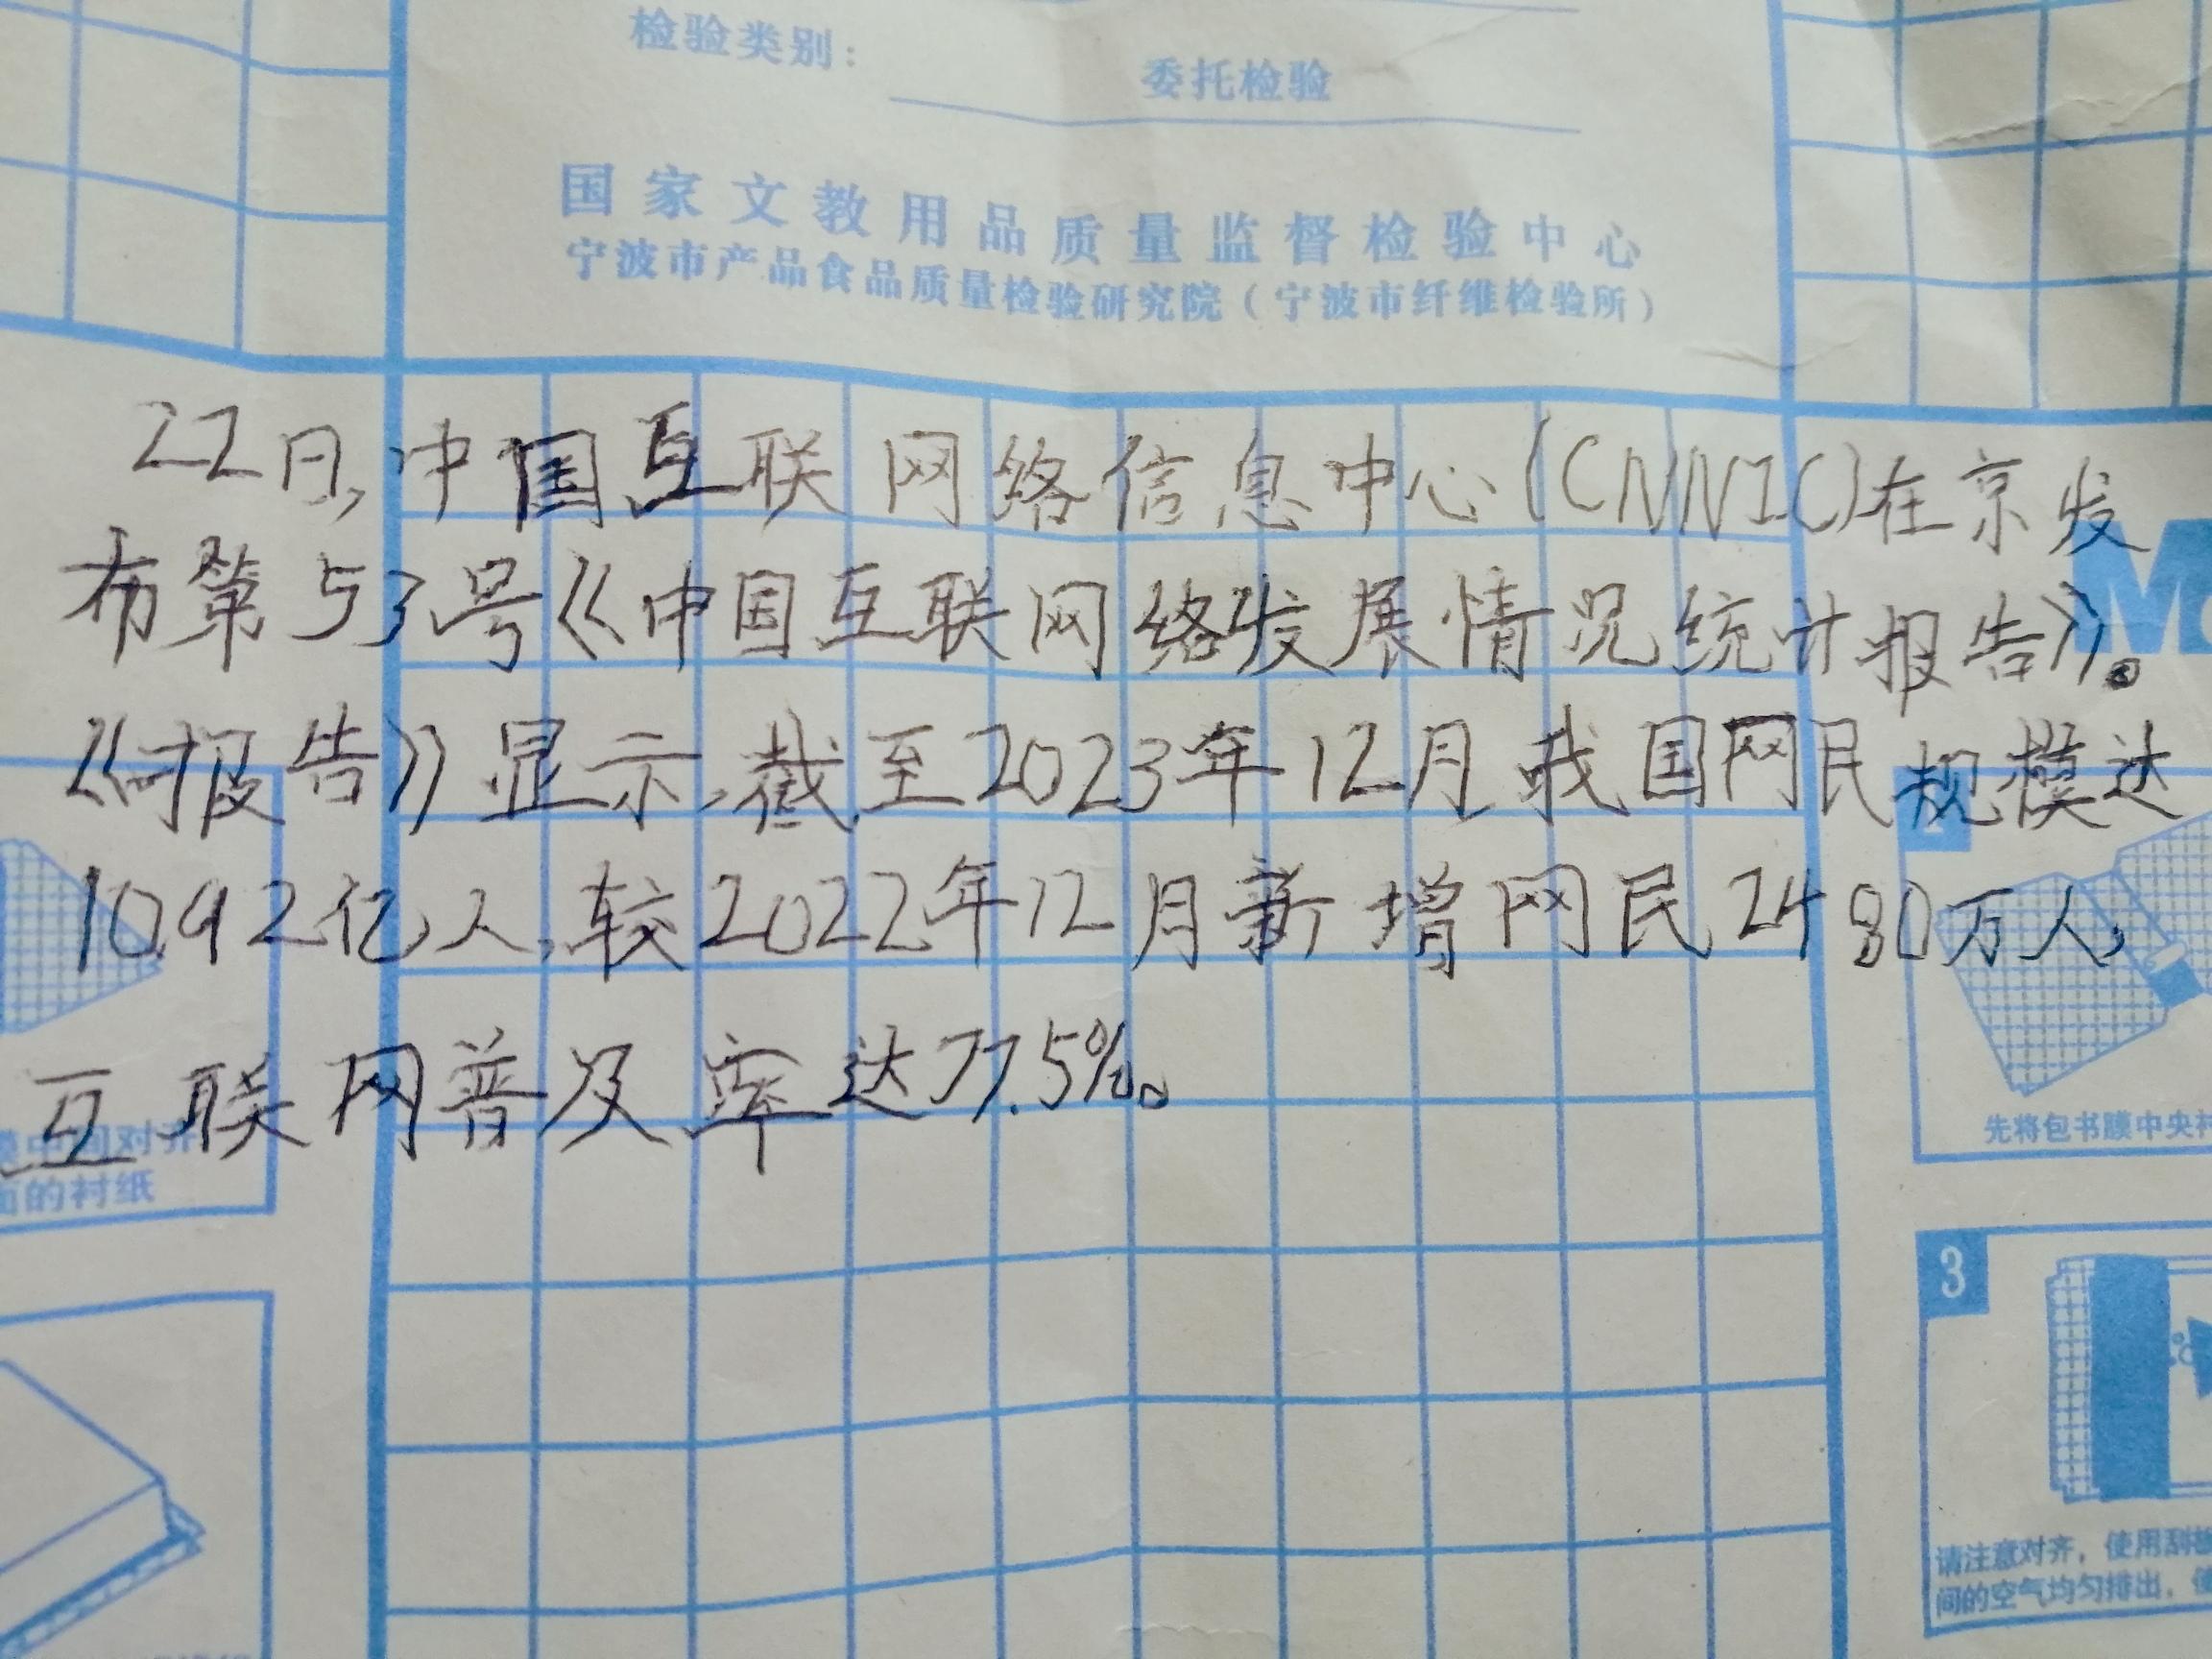 检验类别：
委托检验
国家文教用品质量监督检验中心
宁波市产品食品质量检验研究院（宁波市纤维检验所）
22日,中国互联网络信息中心(CNNIC)在京发
布第53号《中国互联网络发展情况统计报告》。
《报告》显示,截至2023年12月,我国网民规模达
10.92亿人,较2022年12月新增网民2480万人,
互联网普及率达77.5%。
M
中间对齐
面的衬纸
2
先将包书膜中央衬
3
请注意对齐，使用刮板
间的空气均匀排出，使